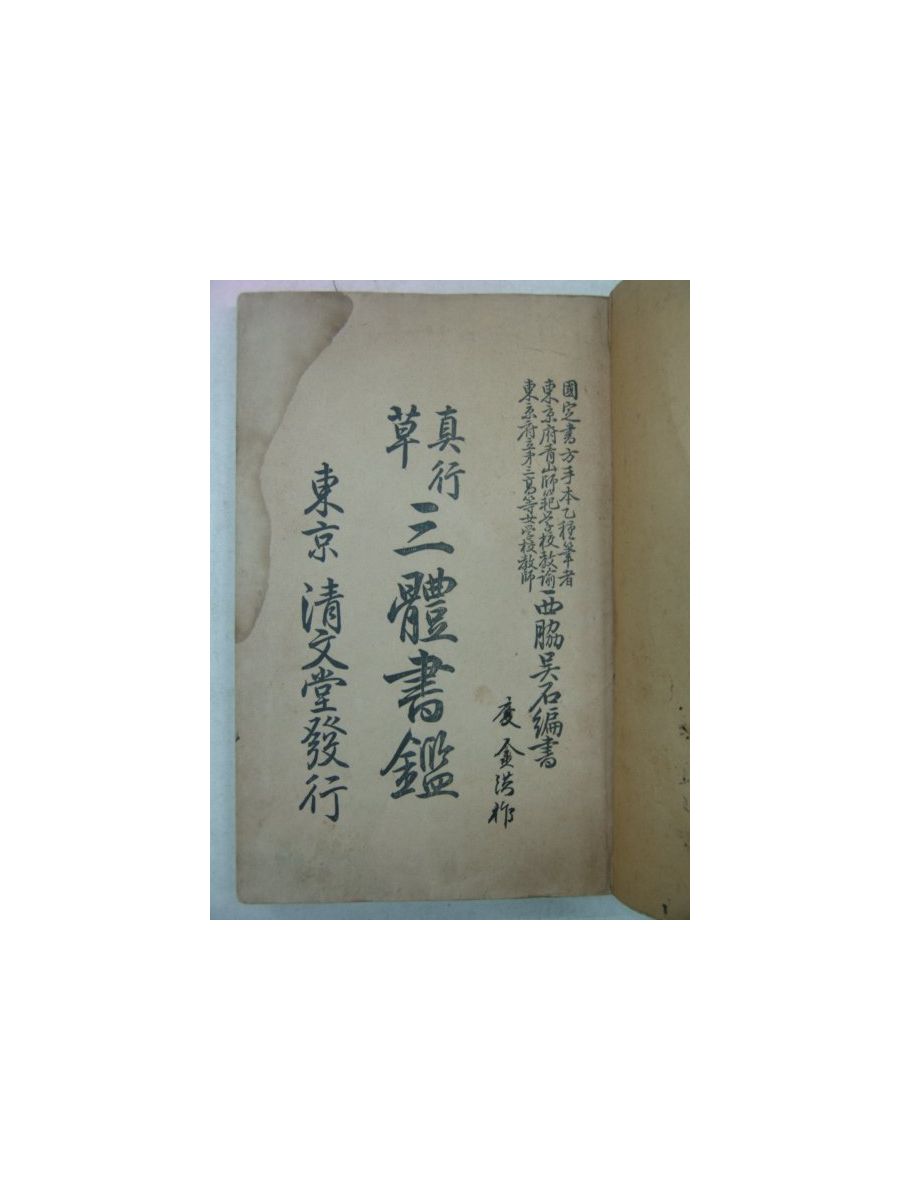 國定書方手本乙種筆者
東京府青山師範学校教諭
東京府立第三高等女学校教師
西脇呉石編書
金洪
真行草
三體書鑑
東京 清文堂發行